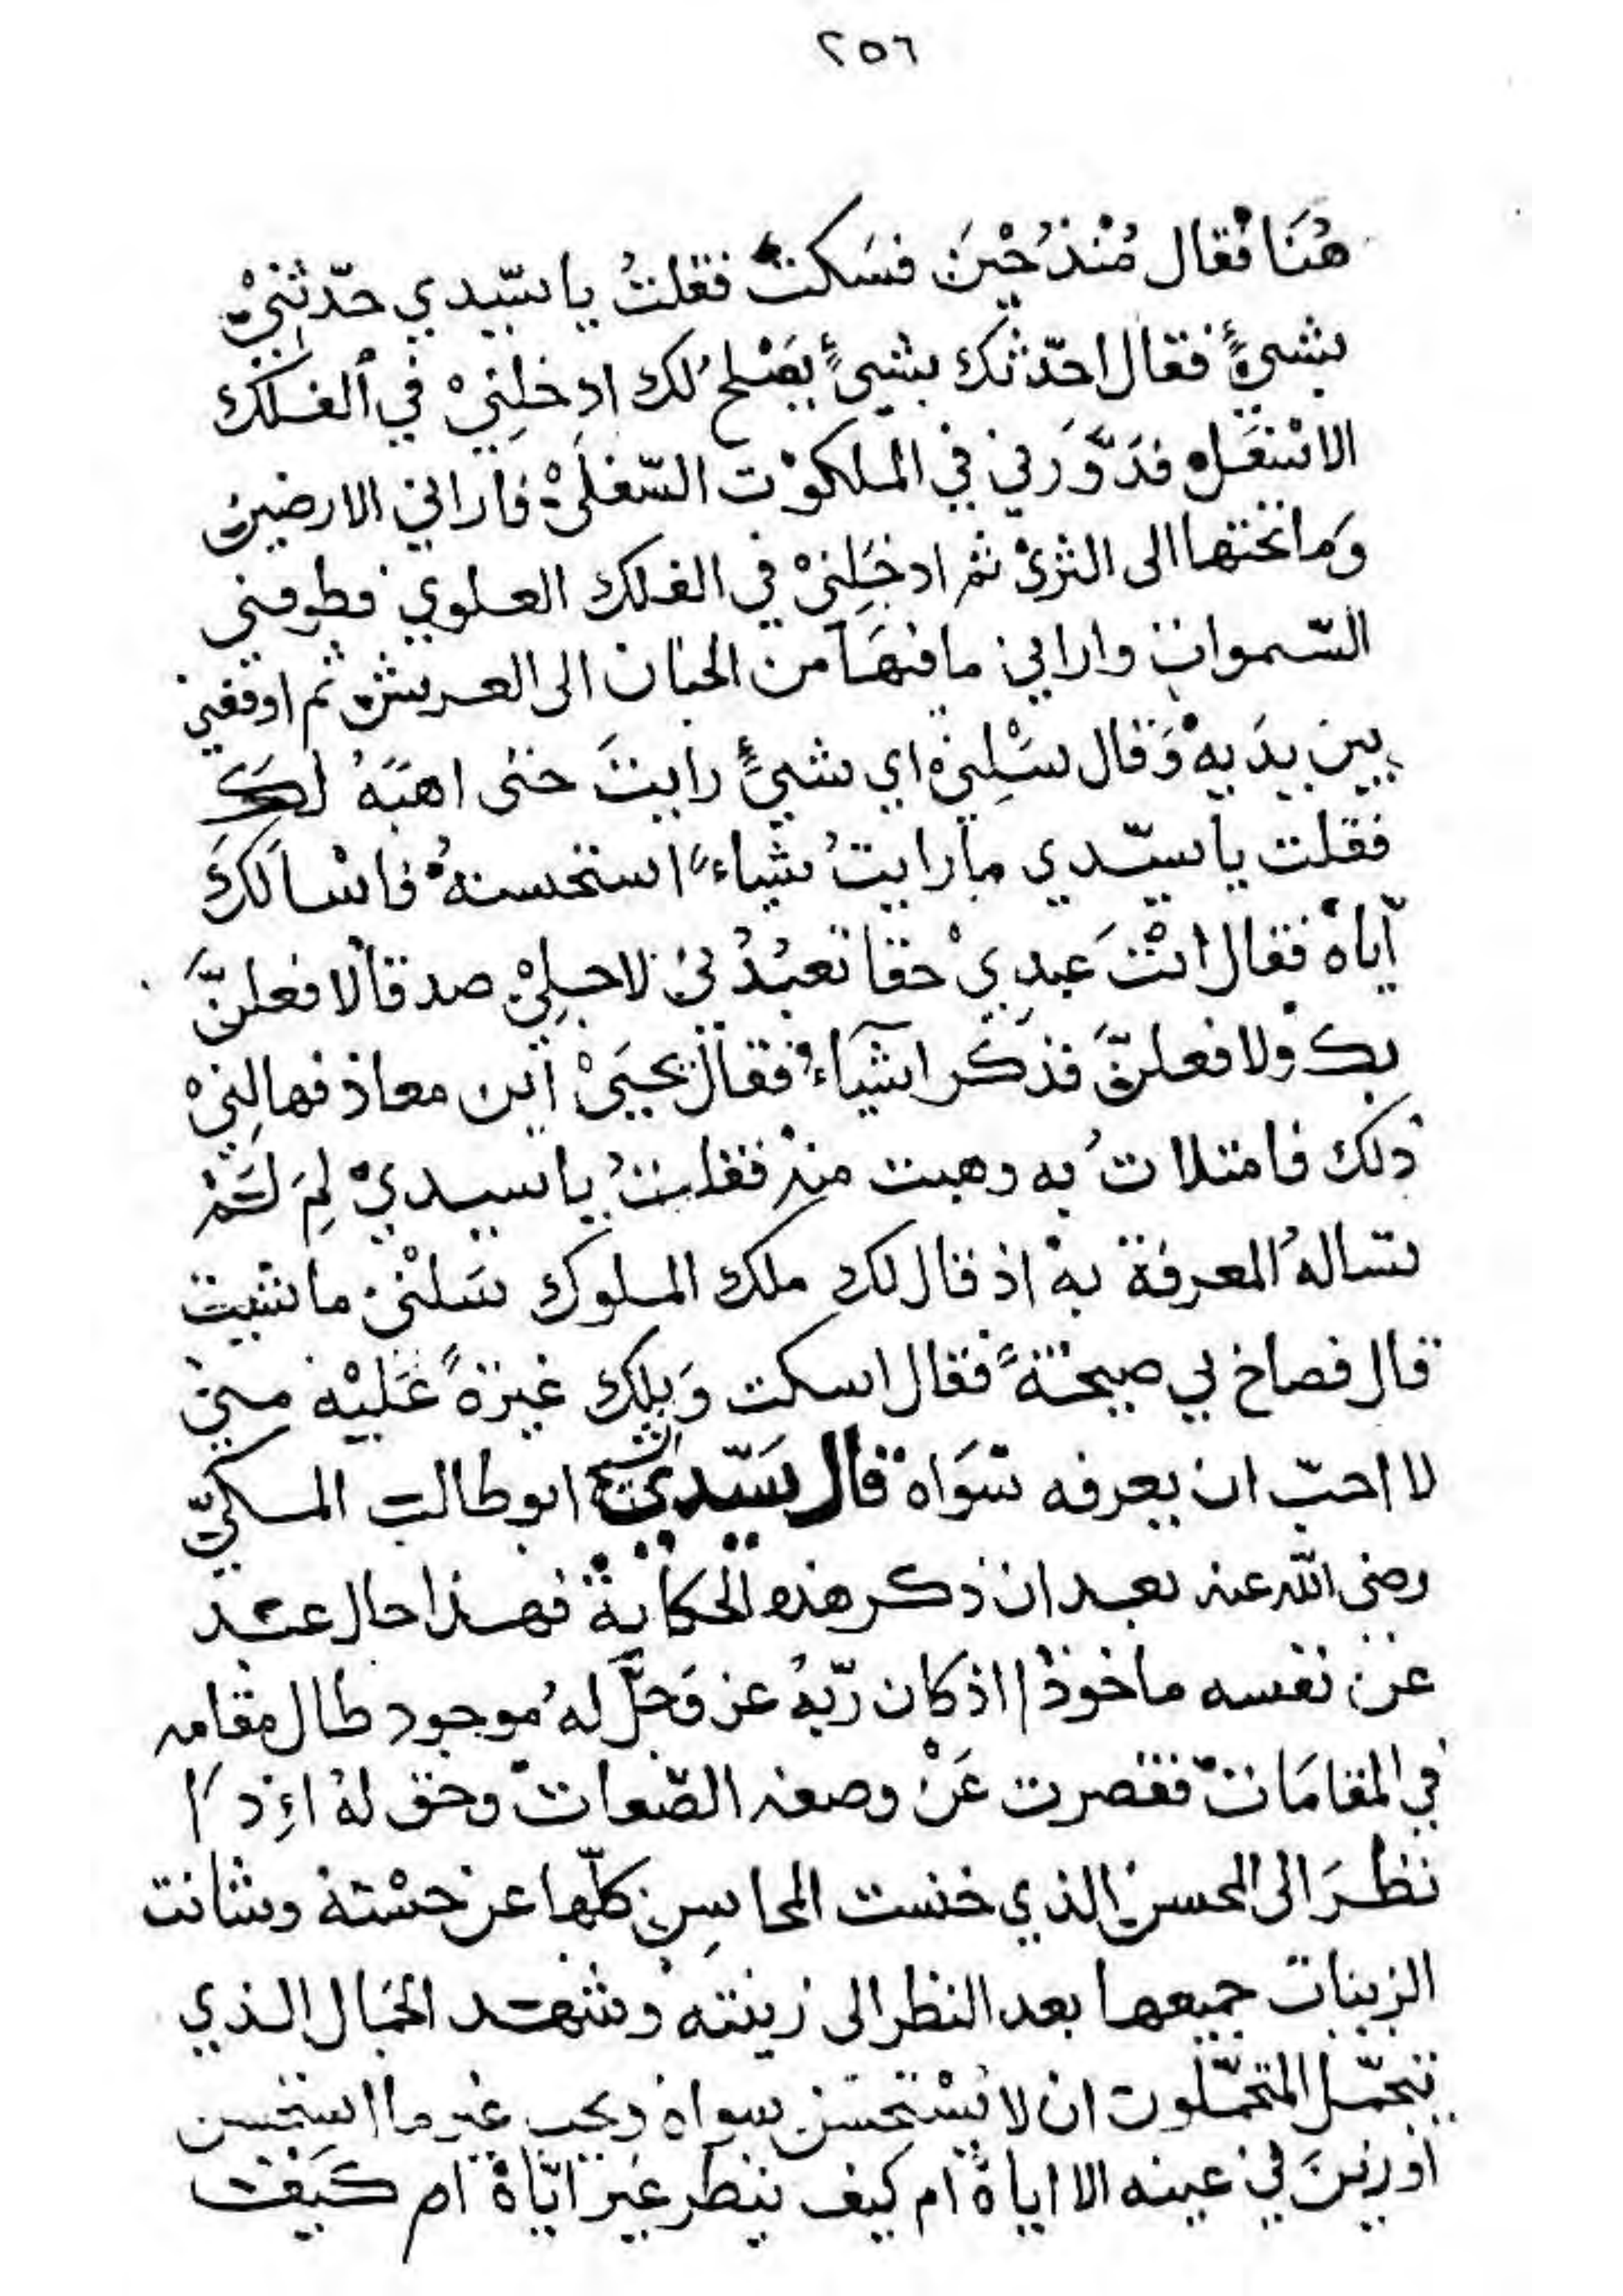 ٢٥٦
هُنَا فقال مُنْذُ حْيِنَ فسَكتْ فقلتُ يا سّيدي حدّثنِيْ
بشيءٍ فقال احدّثك بشيءٍ يصْلح لك ادخلنِيْ في الفلك
الاسْفَل فدَوَّرَني في الملكوْت السّفلَىْ فاراني الارضين
وَما تحتها الى الثرىْ ثم ادخَلِنيْ في الفلك العلوي فطوفني
السّموات واراني ما فيهَا من الجنان الى العرش ثم اوقفني
بين يدَيهْ وَقال سَلْنِيْ اي شيءٍ رايتَ حتى اهبَهُ لكَ
فقلت يا سيّدي ما رايتُ شياءً استحسنتهُ فاسْالكَ
اّياهْ فقال انتَ عبدِيْ حقا تعبُدُني لاجلِيْ صدقا لافعلنَّ
بك ولافعلنَّ فذكر اشيَآءْ فقال يحيَىْ ابن معاذ فهالنِيْ
ذلك فامتلاتُ به وهبت منه فقلتُ يا سيديْ لِمَ لَمْ
تسالهُ المعرفة بهْ اذ قال لك ملك الملوك سَلْنيْ ما شيت
قال فصاح بي صيحَةً فقال اسكت وَيلك غيرَةً عَليْه منيْ
لا احبّ ان يعرفه سَوَاهْ قال سَيّدي الشيخ ابو طالب المكيّ
رضي الله عنه بعد ان ذكر هذه الحكايةْ فهذا حال عبد
عن نفسه ماخوذْ اذ كان رّبهُ عز وَجلّ لهُ موجود طال مقامه
في المقامَات فقصرت عَنْ وصفه الصّفات وحق لهُ اءِذَا
نظرَ الى الحسن الذي خنست المحاسِن كلّها عن حسْنه وشانت
الزينات جميعها بعد النظر الى زينته وشهد الجمَال الذي
تجمّل المتجمّلون ان لا يسْتحسَن سواه ويحب غير ما استحسن
او زينَ في عينه الا اياهْ ام كيف ينظر غير ايّاهْ ام كَيفْ